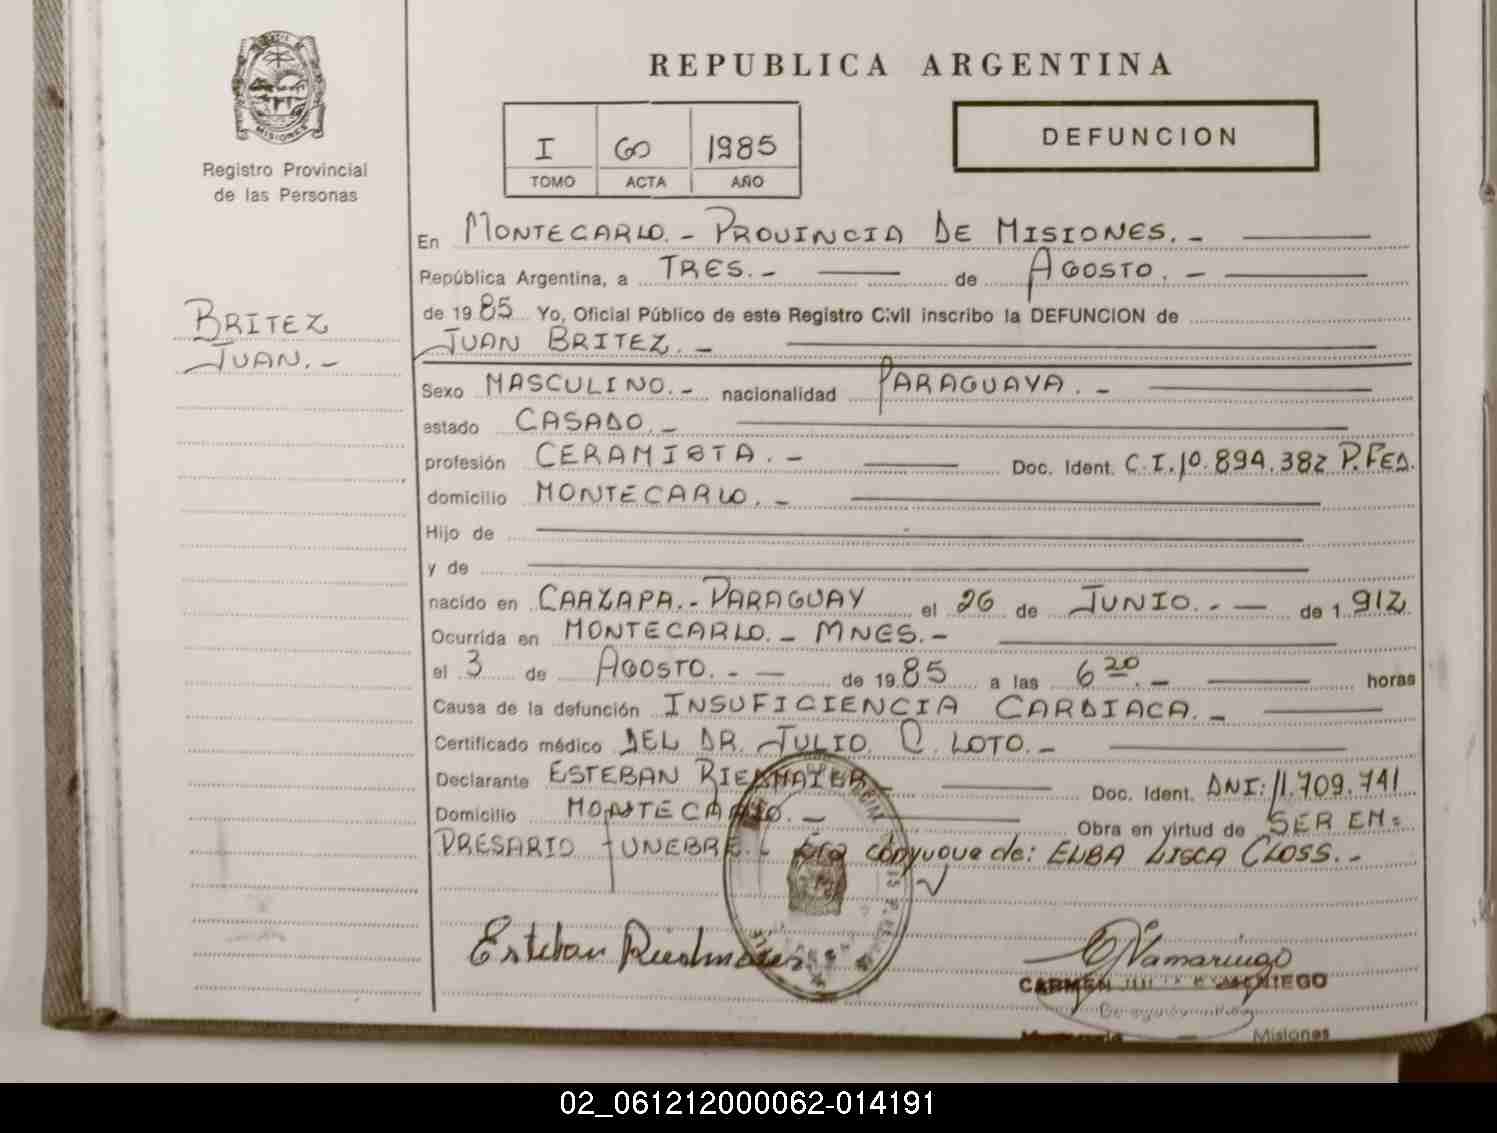 MISIONES
Registro Provincial
de las Personas
BRITEZ
JUAN.-
REPUBLICA ARGENTINA
I 60 1985
TOMO ACTA AÑO
DEFUNCION
En MONTECARLO.- PROVINCIA DE MISIONES.-
República Argentina, a TRES.- de AGOSTO.-
de 19 85 Yo, Oficial Público de este Registro Civil inscribo la DEFUNCION de
JUAN BRITEZ.-
Sexo MASCULINO.- nacionalidad PARAGUAYA.-
estado CASADO.-
profesión CERAMISTA.- Doc. Ident. C.I. 10.894.382 P.FED.
domicilio MONTECARLO.-
Hijo de
y de
nacido en CAAZAPA.- PARAGUAY el 26 de JUNIO.- de 1.912
Ocurrida en MONTECARLO.- MNES.-
el 3 de AGOSTO.- de 19 85 a las 6 20.- horas
Causa de la defunción INSUFICIENCIA CARDIACA.-
Certificado médico DEL DR. JULIO. C. LOTO.-
Declarante ESTEBAN RIEDMAIER.- Doc. Ident. DNI: 11.709.741
Domicilio MONTECARLO.- Obra en virtud de SER EM=
PRESARIO FUNEBRE.- Era cónyuque de: ELBA LISCA CLOSS.-
Esteban Riedmaier
CARMEN
Misiones
02_061212000062-014191